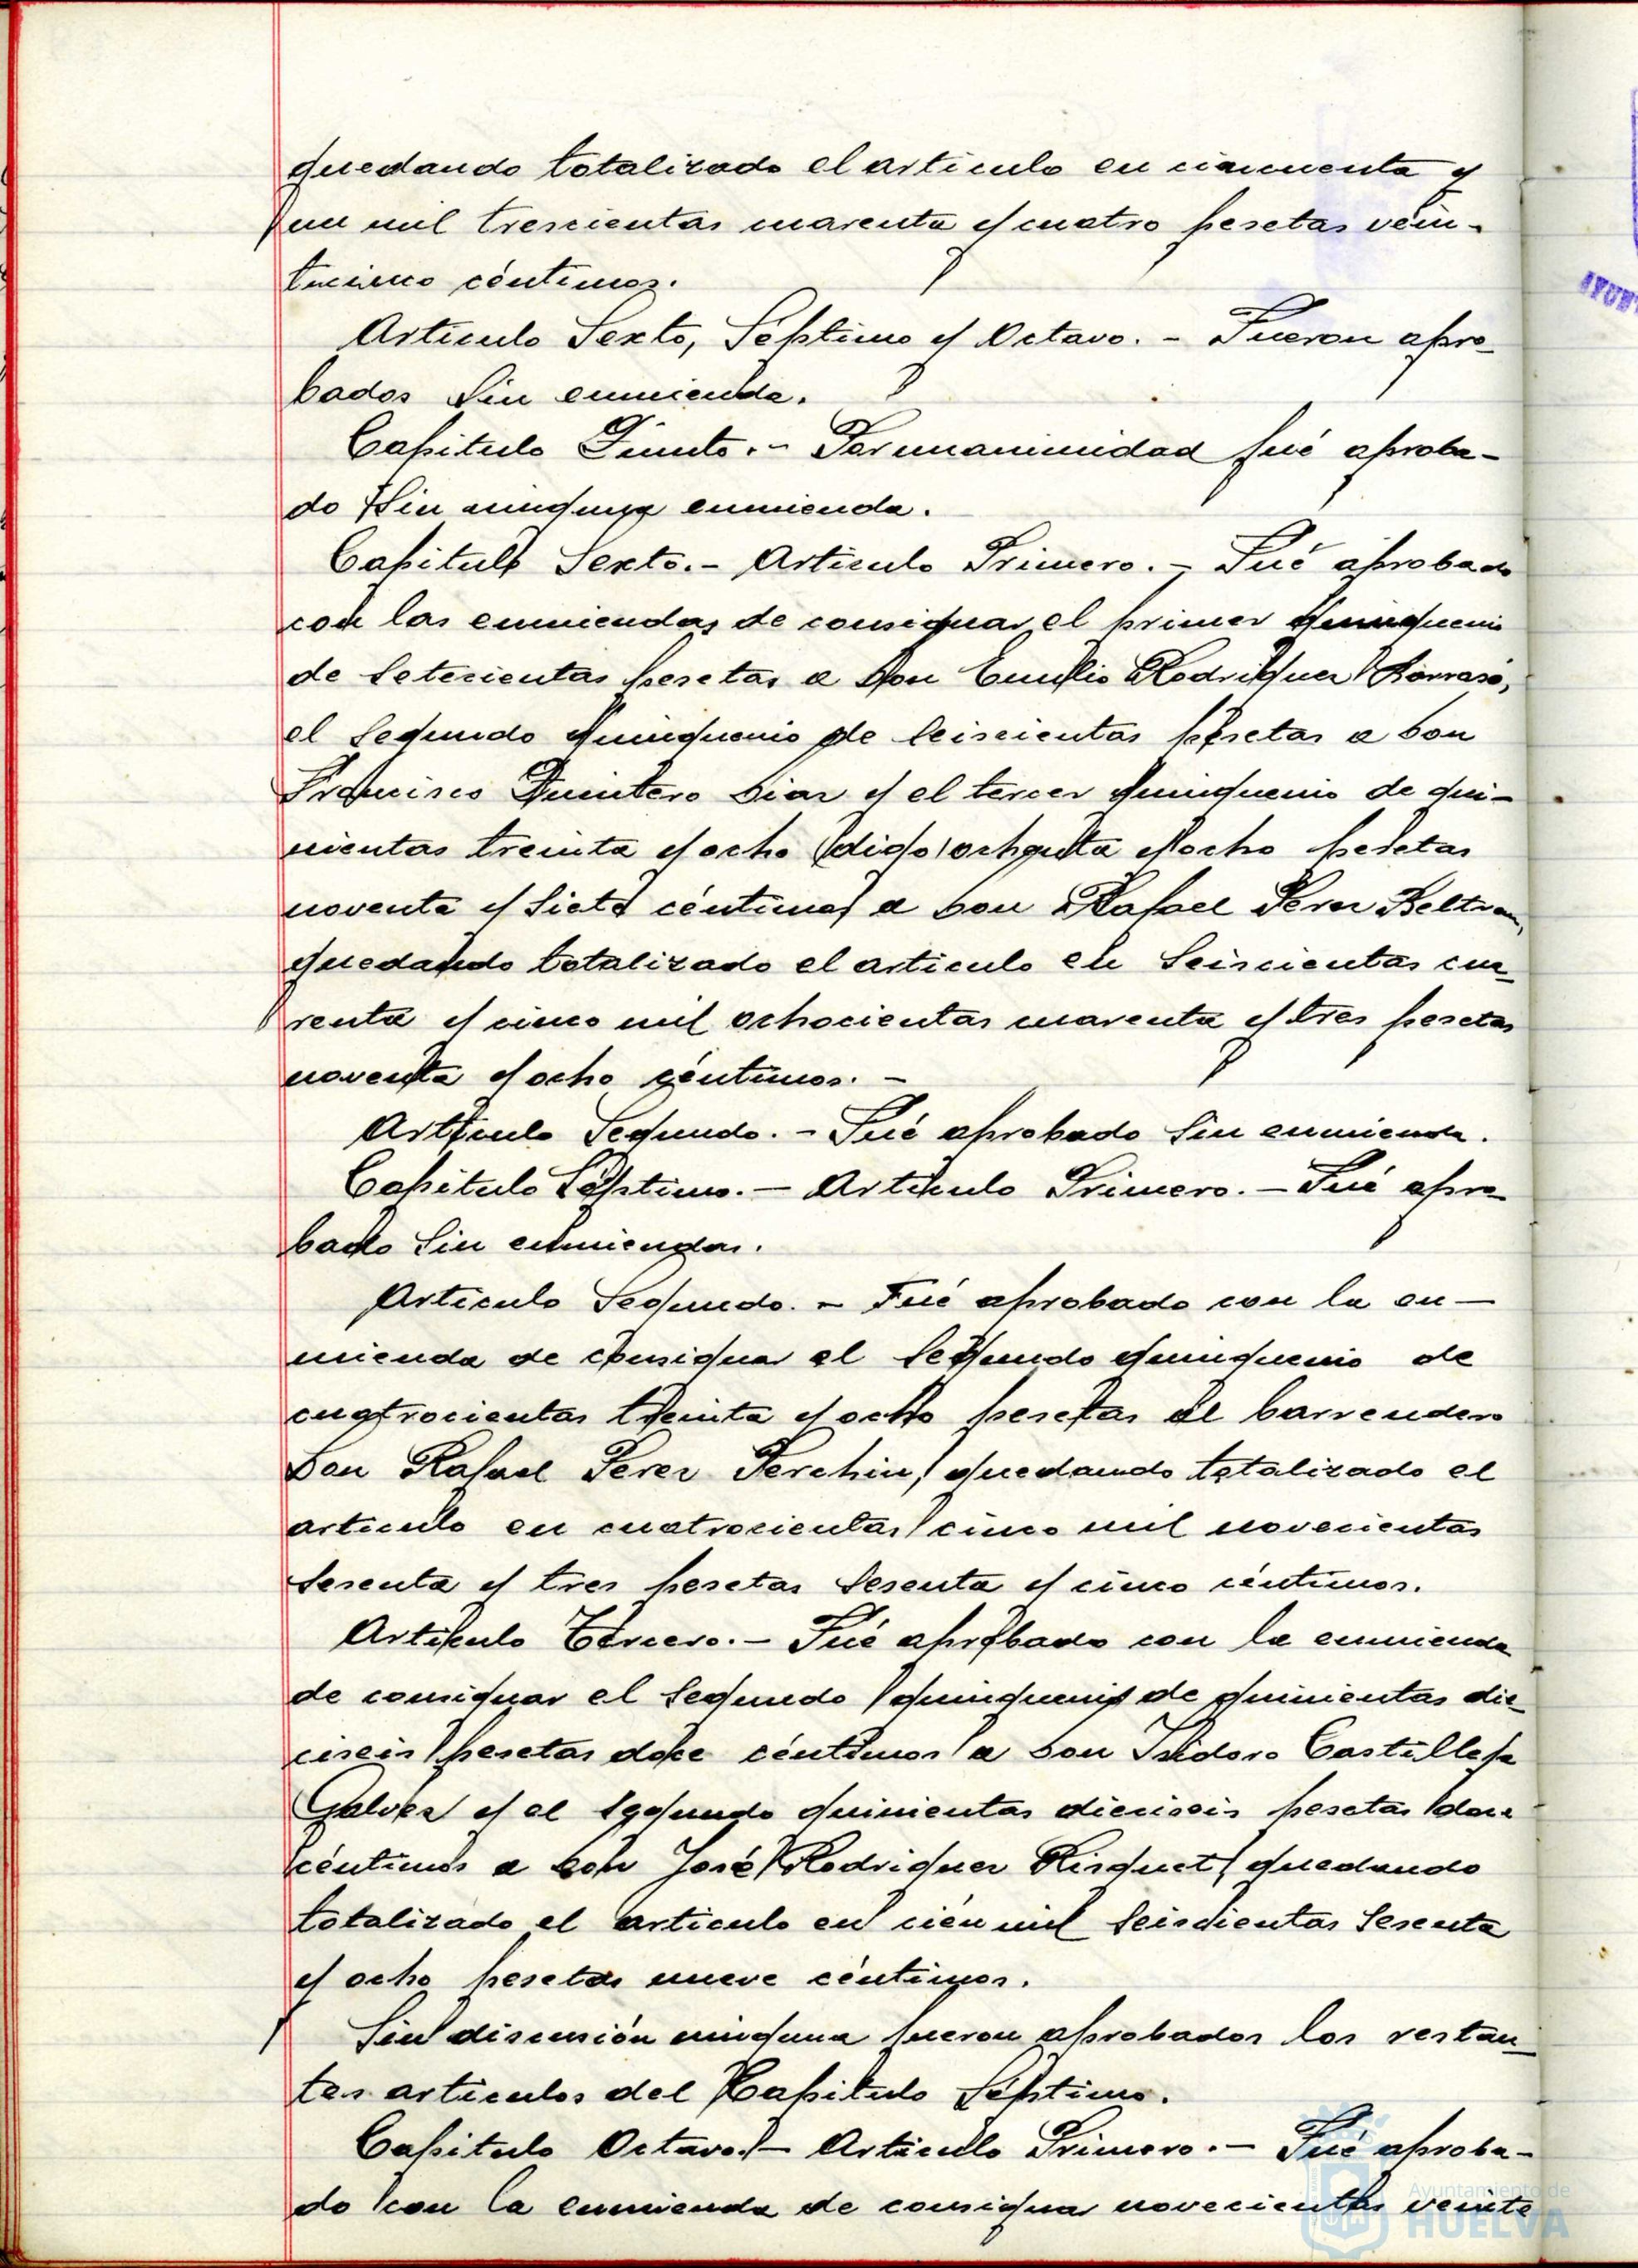 quedando totalizado el artículo en cincuenta y
un mil trescientas cuarenta y cuatro pesetas vein-
ticinco céntimos.
Artículo Sexto, Séptimo y Octavo. - Fueron apro-
bados sin enmienda.
Capitulo Quinto. - Por unanimidad fué aproba-
do sin ninguna enmienda.
Capitulo Sexto. - Articulo Primero. - Fué aprobado
con las enmiendas de consignar el primer quinquenio
de setecientas pesetas a Don Emilio Rodriguez
el segundo quinquenio de seiscientas pesetas a Don
Francisco Quintero Diaz y el tercer quinquenio de qui-
nientas treinta y ocho (digo) ochenta y ocho pesetas
noventa y siete céntimos a Don Rafael Perez Beltran,
quedando totalizado el articulo en seiscientas cua-
renta y cinco mil ochocientas cuarenta y tres pesetas
noventa y ocho céntimos. -
Artículo Segundo. - Fué aprobado sin enmienda.
Capitulo Séptimo. - Artículo Primero. - Fué apro-
bado sin enmiendas.
Artículo Segundo. - Fué aprobado con la en-
mienda de consignar el segundo quinquenio de
cuatrocientas treinta y ocho pesetas al barrendero
Don Rafael Perez Perchin, quedando totalizado el
artículo en cuatrocientas cinco mil novecientas
sesenta y tres pesetas sesenta y cinco céntimos.
Artículo Tercero. - Fué aprobado con la enmienda
de consignar el segundo quinquenio de quinientas die-
ciseis pesetas doce céntimos a Don Isidoro Castilleja
Galvez y el segundo quinientas dieciseis pesetas doce
céntimos a Don José Rodriguez Risquet, quedando
totalizado el artículo en cien mil seiscientas sesenta
y ocho pesetas nueve céntimos.
Sin discusión ninguna fueron aprobados los restan-
tes artículos del Capitulo Séptimo.
Capitulo Octavo. - Artículo Primero. - Fué aproba-
do con la enmienda de consignar novecientas veinte
Ayuntamiento de
HUELVA